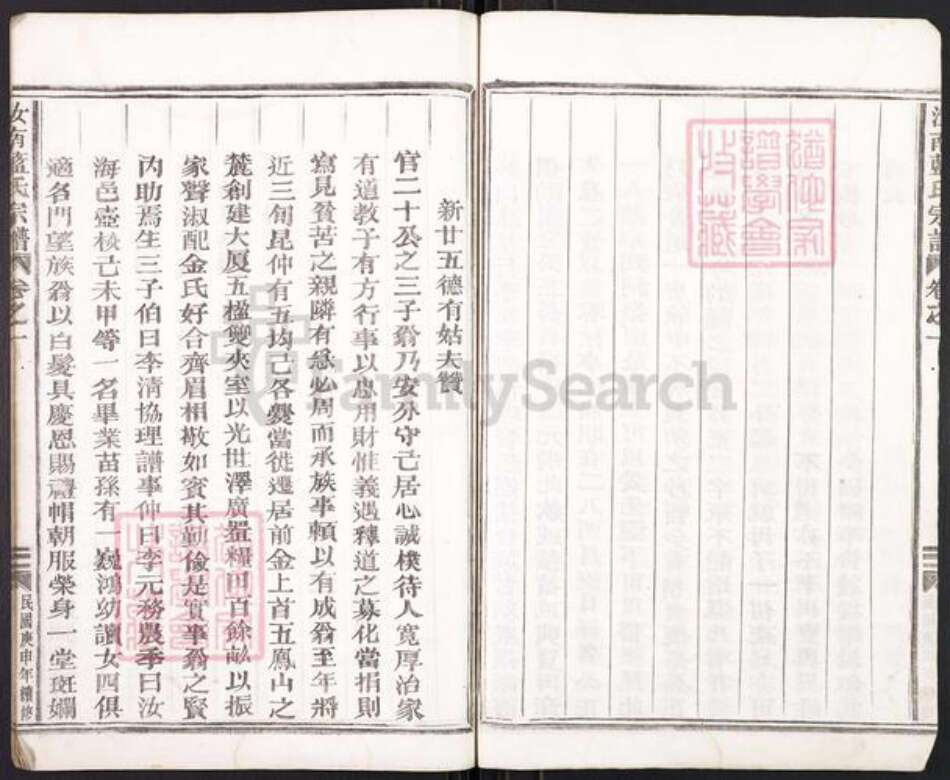 汝南藍氏宗譜 卷之一
新廿五德有姑夫贊
官二十公之三子翁乃安分守己居心誠樸待人寬厚治家
有道教子有方行事以應用財惟義遇釋道之募化當捐則
寫見貧苦之親隣有急必周而承族事賴以有成翁至年將
近三旬昆仲有五均已各爨當徙遷居前金上首五鳳山之
麓創建大厦五楹雙夾室以光世澤廣置糧田百餘畝以振
家聲淑配金氏好合齊眉相敬如賓其勤儉是實事翁之賢
內助焉生三子伯曰李清協理譜事仲曰李元務農季曰汝
海邑壺校己未甲等一名畢業苗孫有一巍鴻幼讀女四俱
適名門望族翁以白髮具慶恩賜禮帽朝服榮身一堂斑斕
汝南藍氏宗譜 卷之一
民國庚申年續修
FamilySearch
譜學會
收藏